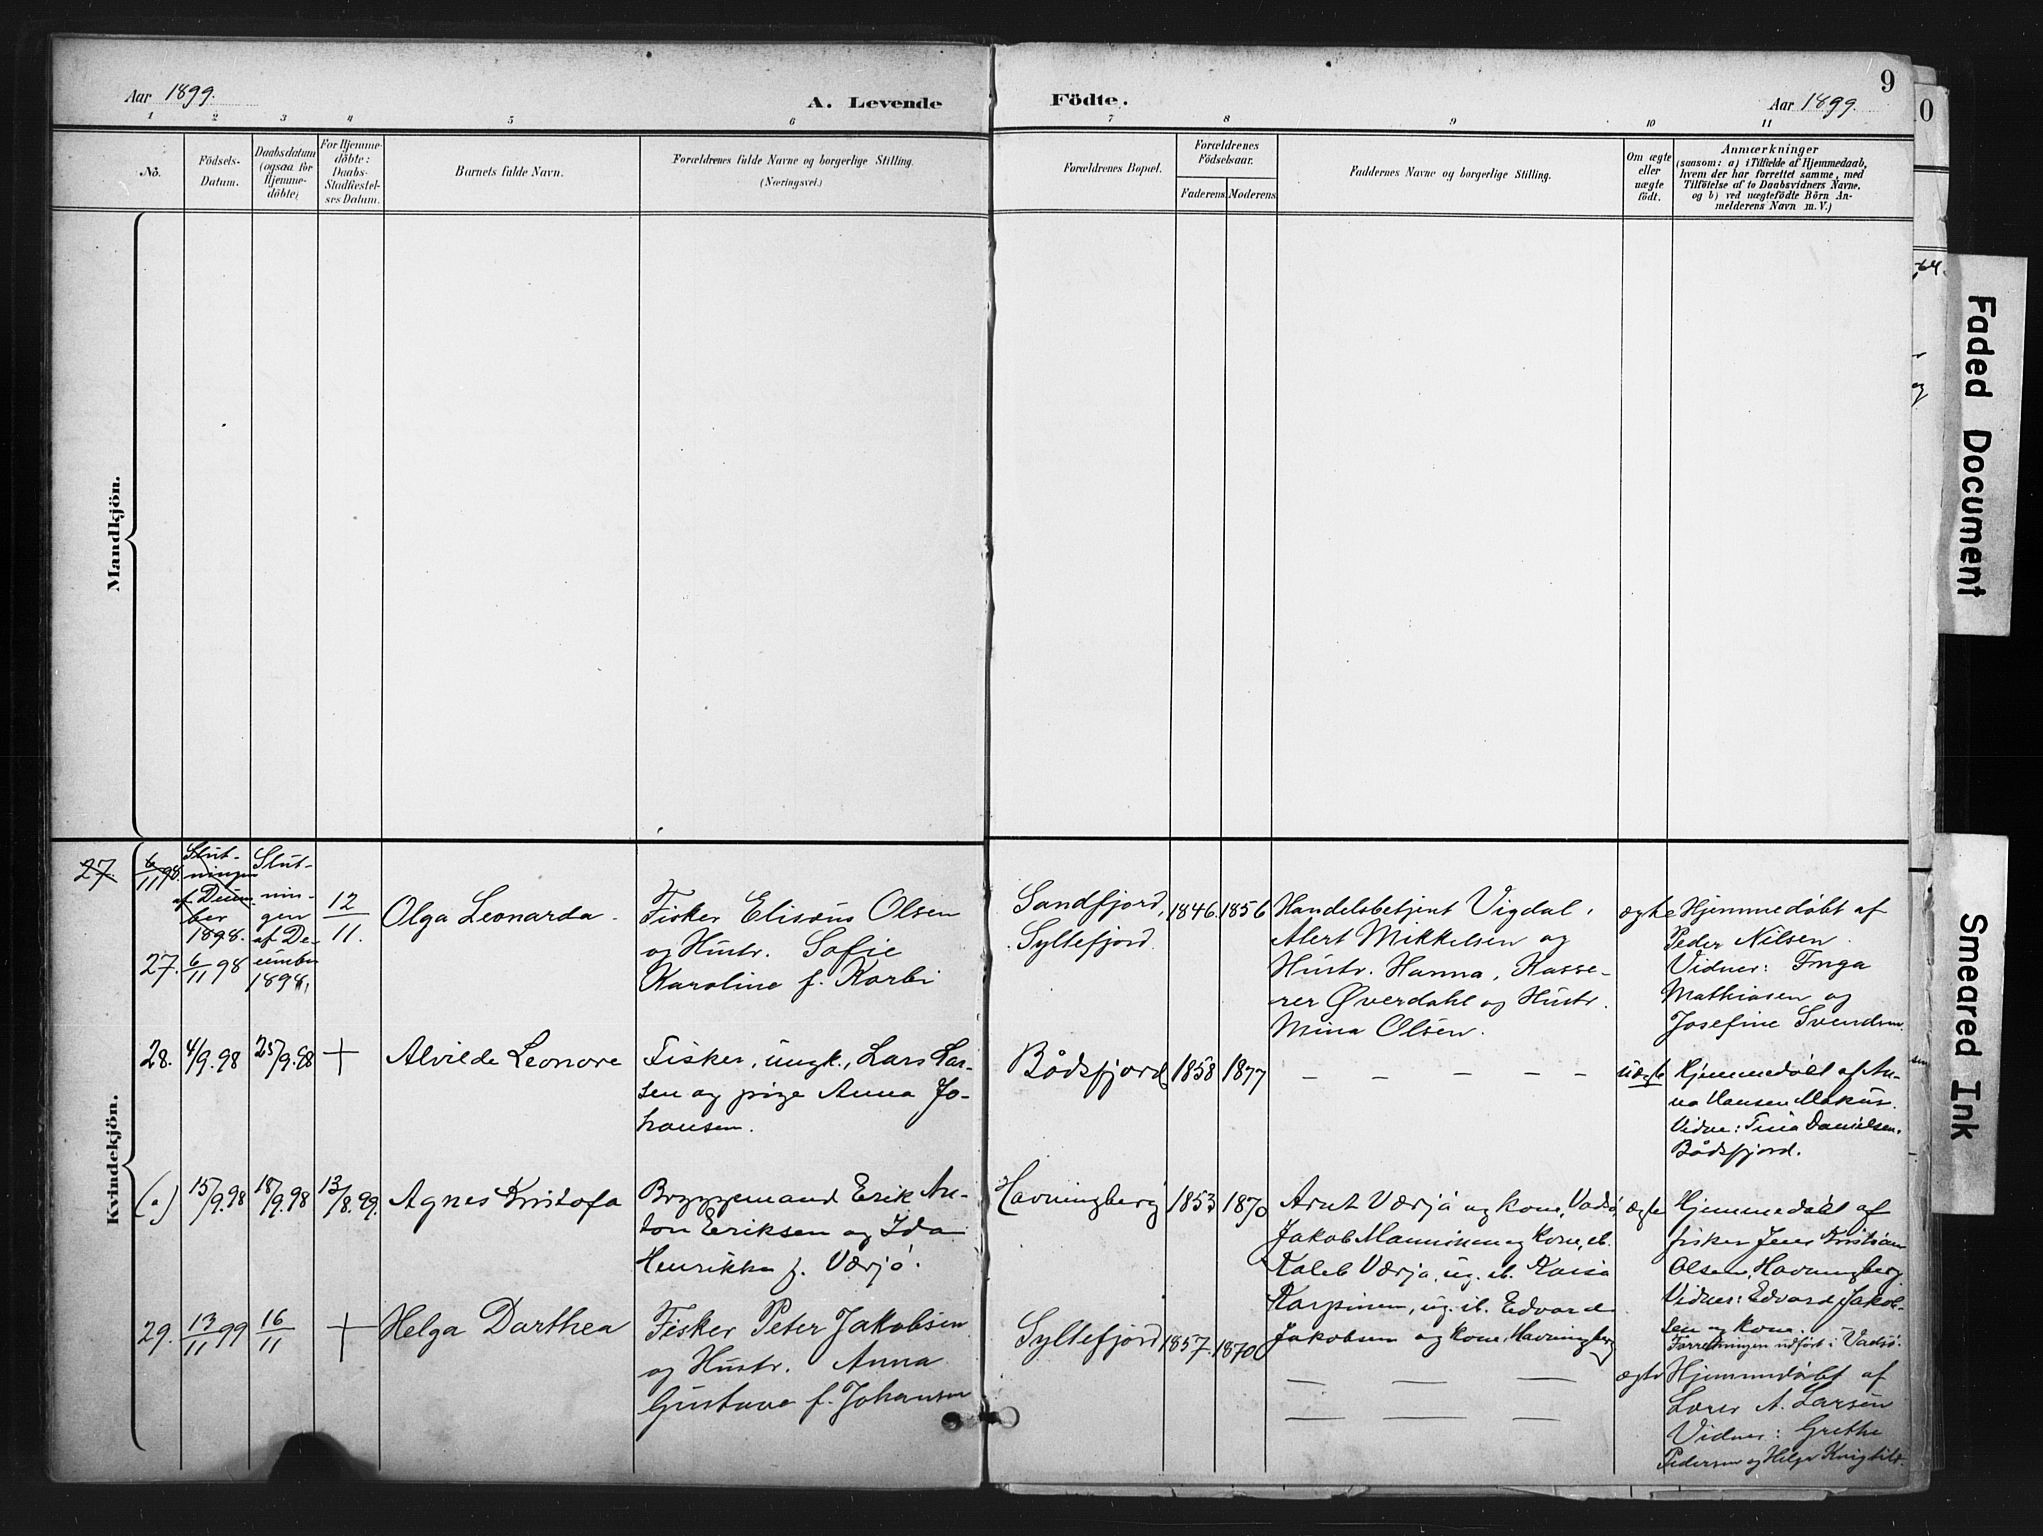 Aar 1899.
A. Levende
Födte.
Aar 1899.
9
1 2 3 4 5 6 7 8 9 10 11
No.
Födsels-
Datum.
Daabsdatum
(ogsaa for
Hjemme-
döbte)
For Hjemme-
döbte:
Daabs-
Stadfæstel-
ses Datum.
Barnets fulde Navn.
Forældrenes fulde Navne og borgerlige Stilling.
(Næringsvei.)
Forældrenes Bopæl.
Forældrenes
Födselsaar.
Faderens
Moderens
Faddernes Navne og borgerlige Stilling.
Om ægte
eller
uægte
födt.
Anmærkninger
(saasom: a) i Tilfælde af Hjemmedaab,
hvem der har forrettet samme, med
Tilföielse af to Daabsvidners Navne,
og b) ved uægtefödte Börn An-
melderens Navn m. V.)
Mandkjön.
Kvindekjön.
27.
6/11 98.
Slut-
ningen
af Decem-
ber
1898.
27.
6/11 98
Slut-
nin-
gen
af De-
cember
1898.
12
11.
Olga Leonarda
Fisker Elisæus Olsen
og Hustr. Sofie
Karoline f. Korbi
Sandfjord,
Syltefjord.
1846.
1856
Handelsbetjent Vigdal,
Alert Mikkelsen og
Hustr. Hanna, Kasse-
rer Øverdahl og Hustr.
Mina Olsen.
ægte
Hjemmedöbt af
Peder Nilsen.
Vidner: Inga
Mathiasen og
Josefine Svendsen
28.
4/9.98
25/9.98
+
Alvilde Leonore
Fisker, ungk., Lars Lar-
sen og pige Anna Jo-
hansen.
Bådsfjord
1858
1877
— — — — —
uægte
Hjemmedöbt af An-
na Hansen Makur.
Vidne: Tina Danielsen,
Bådsfjord.
(a)
15/9.98
18/9.98
13/8.99.
Agnes Kristofa
Bryggemand Erik An-
ton Eriksen og Ida
Henrikka f. Værjö.
Havningberg
1853
1870
Arnt Værjö og kone, Vadsö,
Jakob Manninen og kone, ib.
Kaleb Værjö, ug. ib. Kaisa
Karpinen, ug. ib. Edvard
Jakobsen og kone, Havningberg
ægte
Hjemmedöbt af
fisker Jens Kristian
Olsen, Havningberg.
Vidner: Edvard Jakob-
sen og kone.
Forretningen udfört i Vadsö.
29.
13/11 99
16/11
+
Helga Darthea
Fisker Peter Jakobsen
og Hustr. Anna
Gustava f. Johansen
Syltefjord
1857.
1870
— — —
— — —
ægte
Hjemmedöbt af
Lærer A. Larsen
Vidner: Grethe
Pedersen og Helga
Faded Document
Smeared Ink